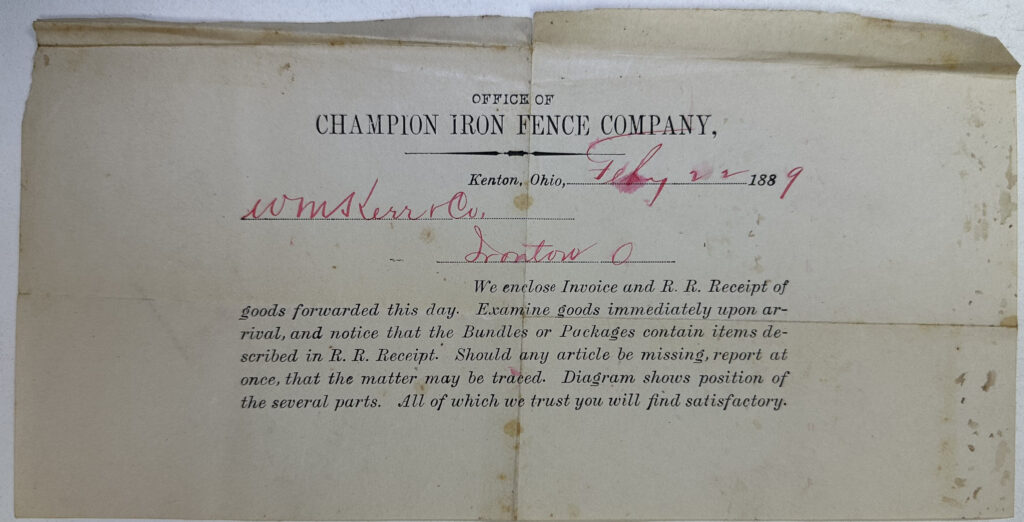 OFFICE OF
CHAMPION IRON FENCE COMPANY,
Kenton, Ohio, Feby 22 1889
Wm Kerr & Co.
Ironton O
We enclose Invoice and R. R. Receipt of
goods forwarded this day. Examine goods immediately upon ar-
rival, and notice that the Bundles or Packages contain items de-
scribed in R. R. Receipt. Should any article be missing, report at
once, that the matter may be traced. Diagram shows position of
the several parts. All of which we trust you will find satisfactory.